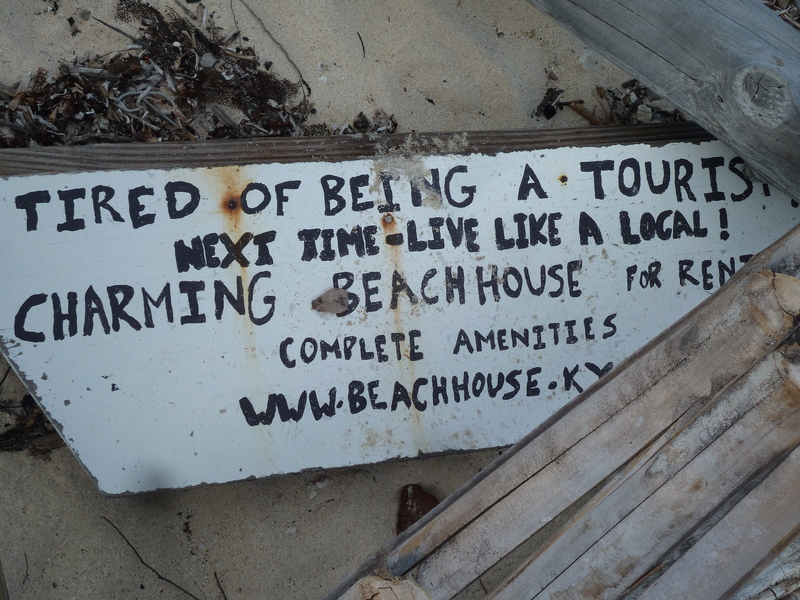 TIRED OF BEING A TOURIST?
NEXT TIME-LIVE LIKE A LOCAL!
CHARMING BEACHHOUSE FOR RENT
COMPLETE AMENITIES
WWW.BEACHHOUSE.KY